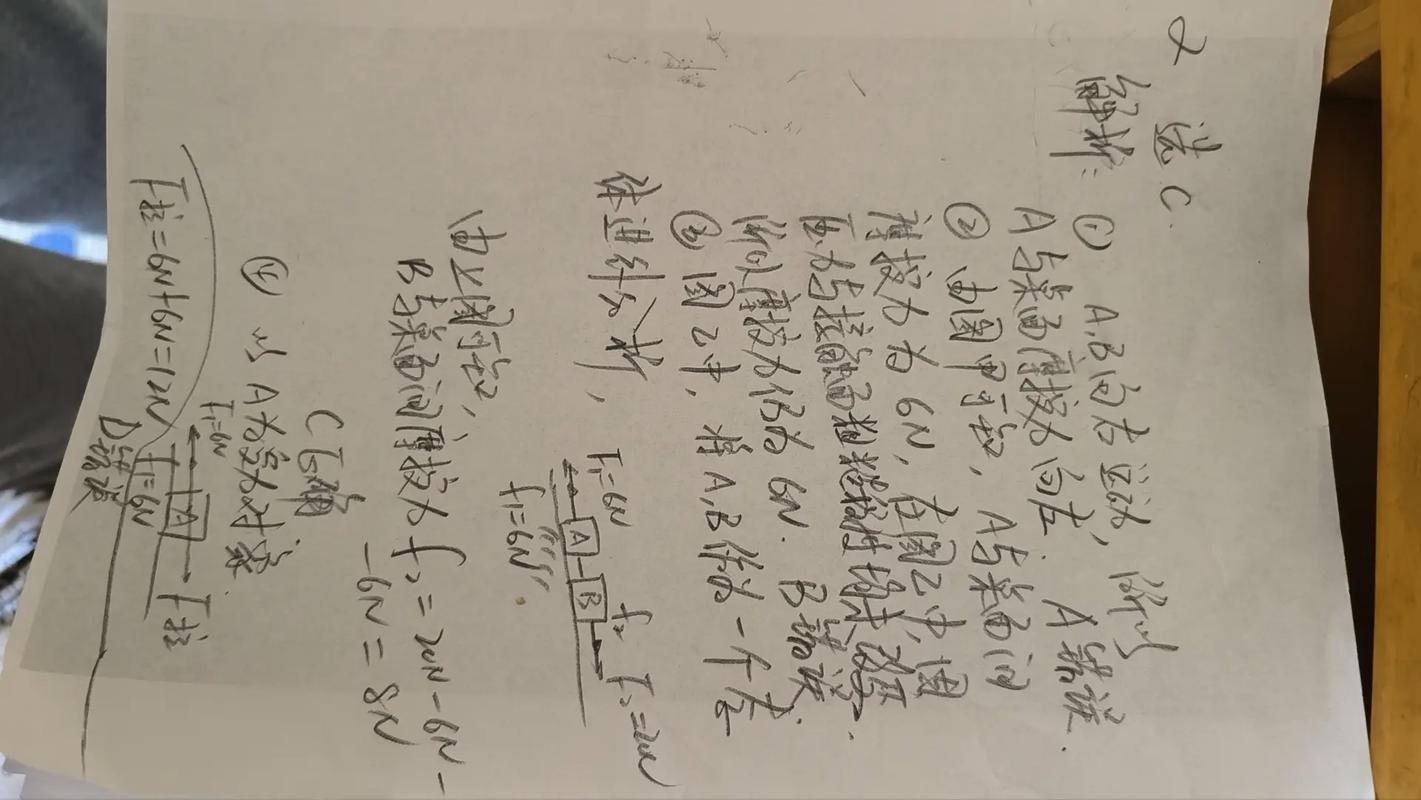 选C
解析: ① A、B向右运动, 所以
A与桌面摩擦力向左. A错误.
② 由图甲可知, A与桌面间
摩擦力为6N, 在图乙中, 因
压力与接触面粗糙程度
所以摩擦力仍为6N. B错误.
③ 图乙中, 将A、B作为一个整
体进行分析,
F₁=6N
f₂
F₂=20N
A
B
f₁=6N
由上图可知,
B与桌面间摩擦力 f₂=20N-6N-
-6N=8N
C正确
④ 以A为参考对象
F₁=6N
A
F拉
f₁=6N
F拉=6N+6N=12N
D错误